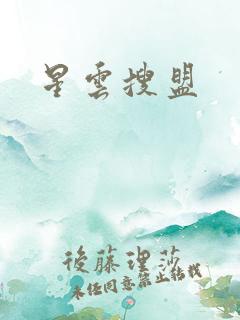 星雲搜盟
後藤理莎
未经同意禁止转载